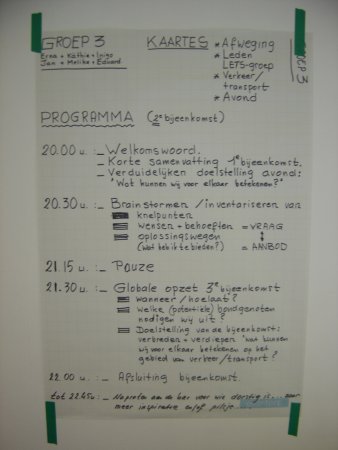 GROEP 3
Erna + Kathie + Inigo
Jan + Melika + Eduard
KAARTES * Afweging
* Leden
LETS-groep
* Verkeer/
transport
* Avond
EP 3
PROGRAMMA (2e bijeenkomst)
20.00 u. :_ Welkomswoord.
_ Korte samenvatting 1e bijeenkomst.
_ Verduidelijken doelstelling avond:
"Wat kunnen wij voor elkaar betekenen?"
20.30 u. :_ Brainstormen / inventariseren van
knelpunten
wensen + behoeften = VRAAG
oplossingswegen
(wat heb ik te bieden?) = AANBOD
21.15 u. :_ Pauze
21.30 u. :_ Globale opzet 3e bijeenkomst
wanneer / hoe laat?
welke (potentiële) bondgenoten
nodigen wij uit?
Doelstelling van de bijeenkomst:
verbreden + verdiepen "wat kunnen
wij voor elkaar betekenen op het
gebied van verkeer/transport?
22.00 u. :_ Afsluiting bijeenkomst.
tot 22.45u :_ Napraten aan de bar voor wie dorstig is....
meer inspiratie en/of pilsje....